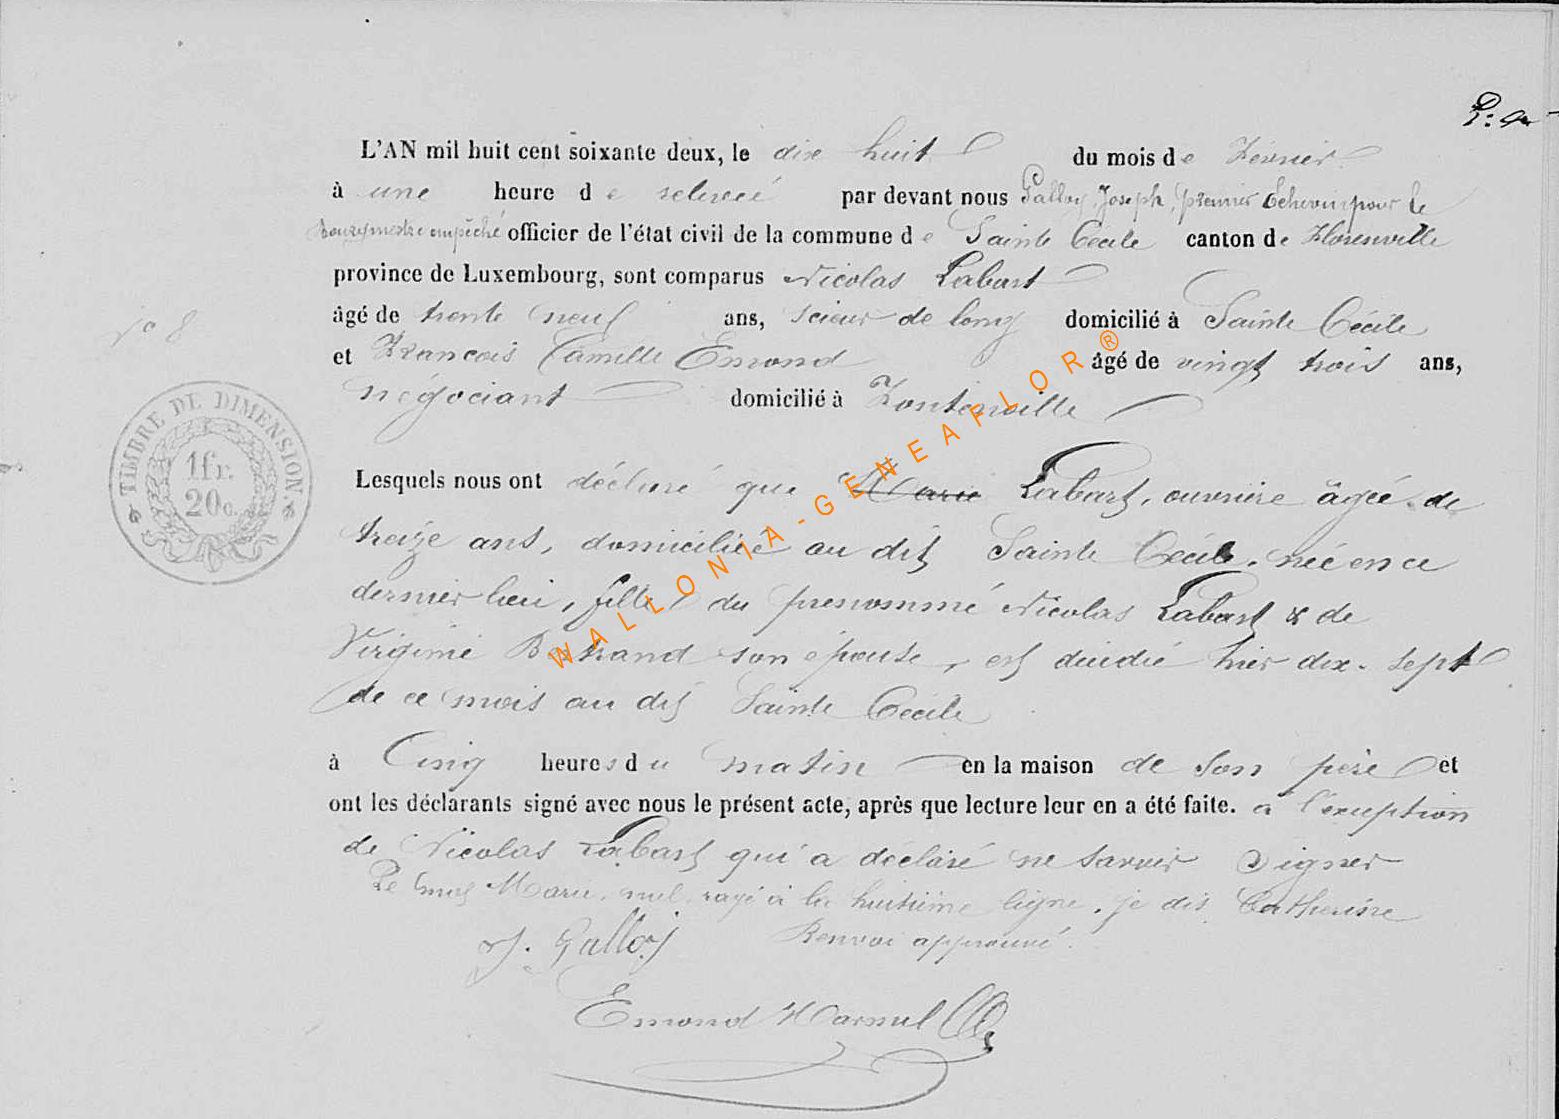 L'AN mil huit cent soixante deux, le dix huit du mois de Février
à une heure de relevée par devant nous Galloy, Joseph, premier Echevin pour le
Bourgmestre empêché officier de l'état civil de la commune de Sainte Cécile canton de Florenville
province de Luxembourg, sont comparus Nicolas Labart
âgé de trente neuf ans, scieur de long domicilié à Sainte Cécile
N° 8
et François Camille Emond âgé de vingt trois ans,
négociant domicilié à Fontenoille
TIMBRE DE DIMENSION.
1fr.
20c.
Lesquels nous ont déclaré que Marie Labart, ouvrière âgée de
treize ans, domiciliée au dit Sainte Cécile, née en ce
dernier lieu, fille du prénommé Nicolas Labart & de
Virginie Bertrand son épouse, est décédée hier dix-sept
de ce mois au dit Sainte Cécile
à Cinq heures du matin en la maison de son père et
ont les déclarants signé avec nous le présent acte, après que lecture leur en a été faite. à l'exception
de Nicolas Labart qui a déclaré ne savoir signer
Le mot Marie, nul, rayé à la huitième ligne, je dis Catherine
J. Galloy Renvoi approuvé.
Emond
WALLONIA-GENEAFLOR®